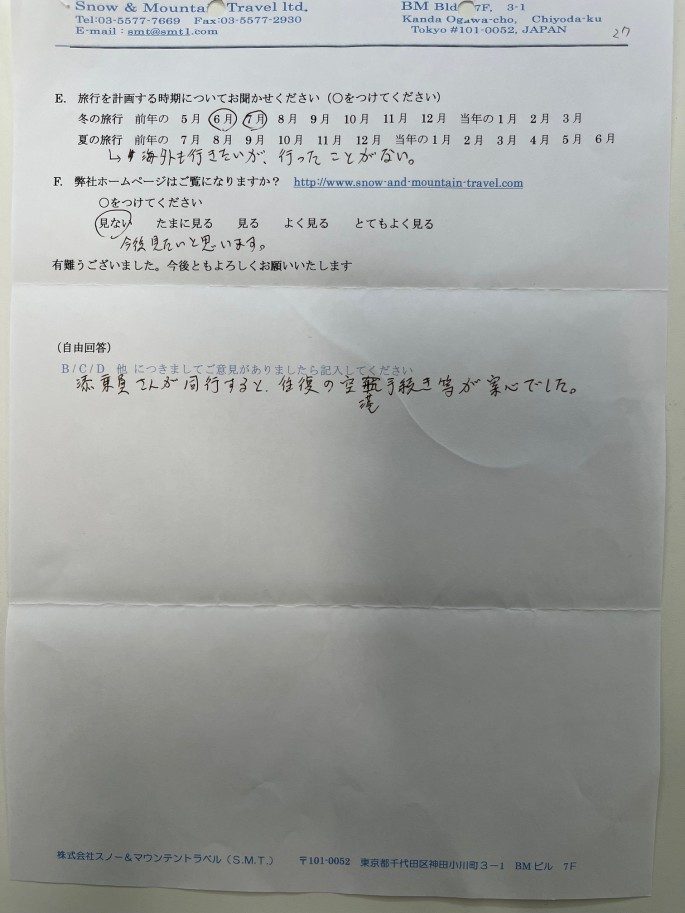 Snow & Mountain Travel ltd. BM Bld 7F. 3-1
Tel:03-5577-7669 Fax:03-5577-2930 Kanda Ogawa-cho, Chiyoda-ku
E-mail : smt@smt1.com Tokyo #101-0052, JAPAN 27
E. 旅行を計画する時期についてお聞かせください（○をつけてください）
冬の旅行 前年の 5月 6月 7月 8月 9月 10月 11月 12月 当年の1月 2月 3月
夏の旅行 前年の 7月 8月 9月 10月 11月 12月 当年の1月 2月 3月 4月 5月 6月
↳ 海外も行きたいが、行ったことがない。
F. 弊社ホームページはご覧になりますか？ http://www.snow-and-mountain-travel.com
○をつけてください
見ない たまに見る 見る よく見る とてもよく見る
今後見たいと思います。
有難うございました。今後ともよろしくお願いいたします
（自由回答）
B / C / D 他 につきましてご意見がありましたら記入してください
添乗員さんが同行すると、往復の空港手続き等が安心でした。
株式会社スノー＆マウンテントラベル（S.M.T.） 〒101-0052 東京都千代田区神田小川町３－1 BMビル 7F